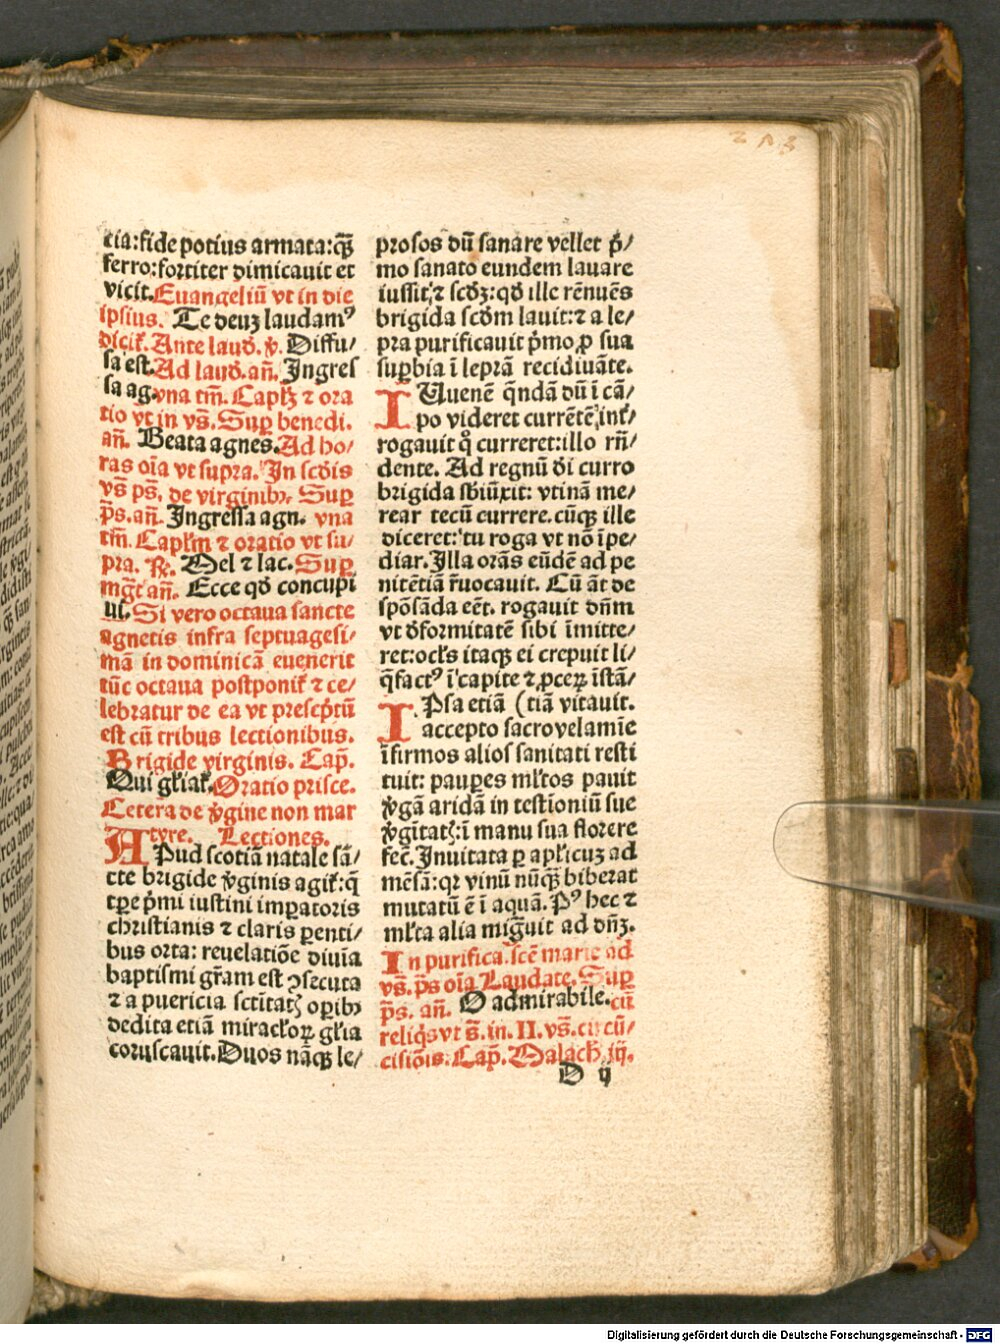 tia:fide potius armata:qȝ
ferro:fortiter dimicauit et
vicit.Euangeliū vt in die
ipsius. Te deuz laudamꝰ
dicit̄. Ante laud̄. ꝟ. Diffu/
sa est. Ad laud̄. an̄. Ingres
sa ag. vna tm̄. Capl̄ꝫ ⁊ ora
tio vt in vs̄. Sup̱ benedi.
an̄. Beata agnes. Ad ho/
ras oīa vt supra. In scd̄is
vs̄ ps̄. de virginibꝫ. Sup̱
p̄s. an̄. Ingressa agn. vna
tm̄. Capl̄m ⁊ oratio vt su/
pra. ℞. Mel ⁊ lac. Sup̱
mg̅t an̄. Ecce qd̄ concupi
ui. Si vero octaua sancte
agnetis infra septuagesi/
mā in dominicā euenerit
tūc octaua postponit̄ ⁊ ce/
lebratur de ea vt prescp̄tū
est cū tribus lectionibus.
Brigide virginis. Cap̄.
Qui gl̄iat̄. Oratio prisce.
Cetera de ꝟgine non mar
tyre. Lectiones.
APud scotiā natale sā/
cte brigide ꝟginis agit̄:q̄
tp̱e p̄mi iustini imp̱atoris
christianis ⁊ claris p̱enti/
bus orta: reuelatiōe diuīa
baptismi gr̄am est ꝯsecuta
⁊ a puericia sctītatꝫ op̱ibꝫ
dedita etiā miracl̄oꝝ gl̄ia
coruscauit. Duos nāqꝫ le/
prosos dū sanare vellet p̄/
mo sanato eundem lauare
iussit, ⁊ scd̄ꝫ: qd̄ ille rēnuēs
brigida scd̄m lauit: ⁊ a le/
pra purificauit p̄mo ꝓ sua
sup̱bia ī leprā recidiuāte.
IUuenē q̄ndā dū ī cā/
po videret currētē, int̄/
rogauit q̊ curreret: illo rn̄/
dente. Ad regnū d̄i curro
brigida sb̄iūxit: vtinā me/
rear tecū currere. cūqꝫ ille
diceret: tu roga vt nō īpe/
diar. Illa orās eūdē ad pe
nitētiā r̄uocauit. Cū āt de
spōsāda eēt. rogauit dn̄m
vt d̄formitatē sibi īmitte/
ret: ocl̄s itaqꝫ ei crepuit li/
q̄factꝰ ī capite ⁊ ꝓceꝝ istā/
IPsa etiā (tiā vitauit.
accepto sacro velamīe
īfirmos alios sanitati resti
tuit: paup̱es ml̄tos pauit
ꝟgā aridā in testioniū sue
ꝟgītatꝫ: ī manu sua florere
fec̄. Inuitata p̱ apl̄icuz ad
mēsā: qꝛ vinū nūqꝫ biberat
mutatū ē ī aquā. Pꝰ hec ⁊
ml̄ta alia mig̅uit ad dn̄ꝫ.
In purifica. scē marie ad
vs̄. ps̄ oīa Laudate. Sup̱
p̄s. an̄. O admirabile. cū
reliq̄s vt s̄. in. II. vs̄. circū/
cisiōis. Cap̄. Malach̄. iij.
D ij
Digitalisierung gefördert durch die Deutsche Forschungsgemeinschaft - DFG